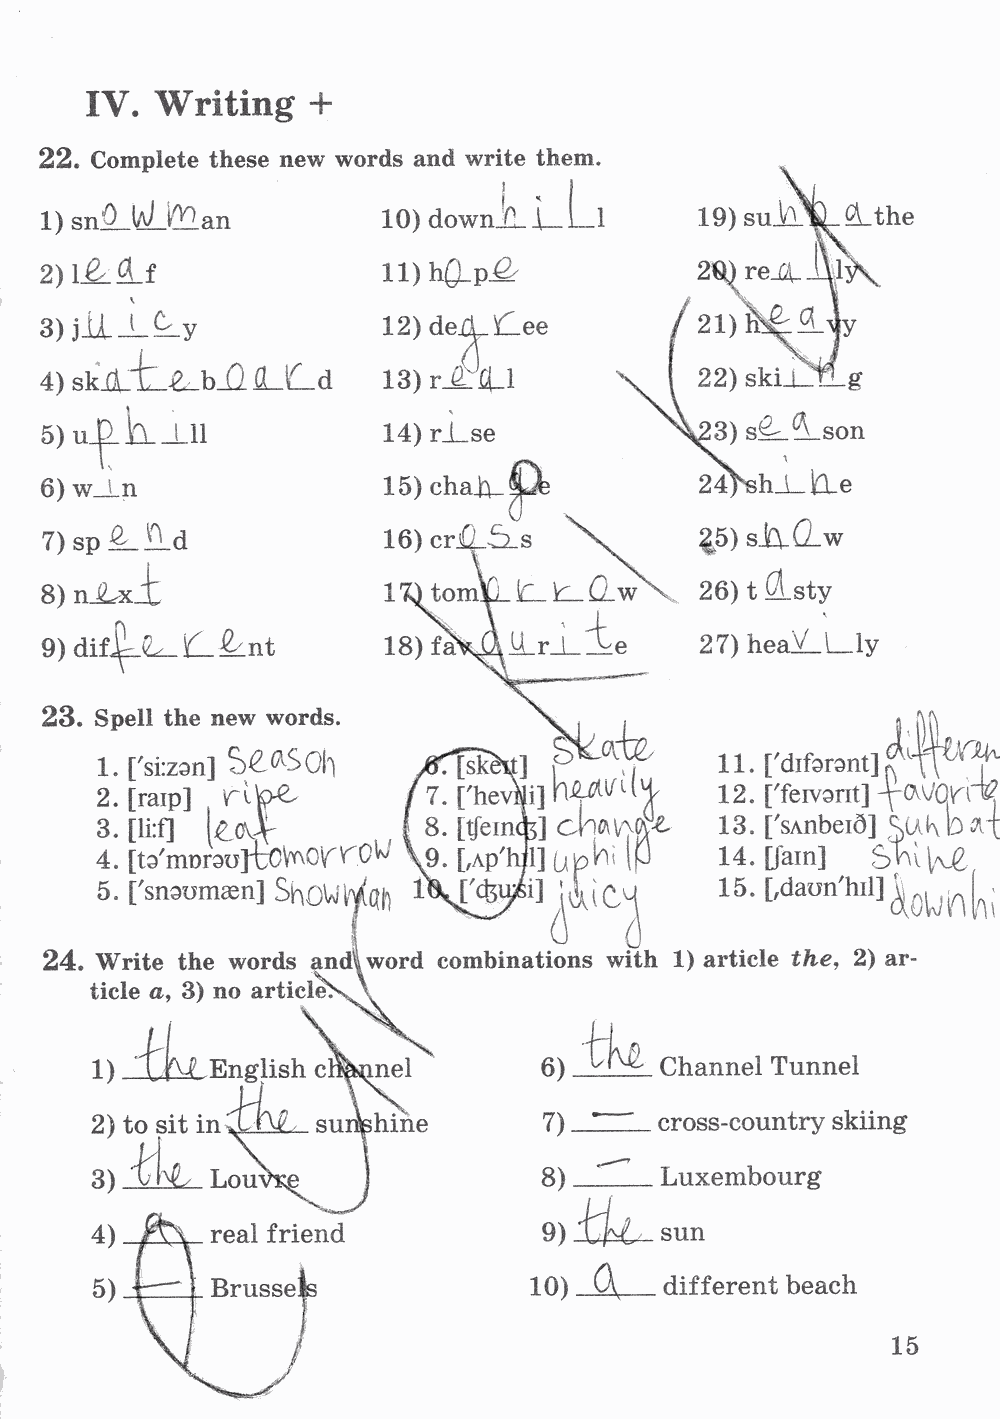 IV. Writing +
22. Complete these new words and write them.
1) snowman
2) leaf
3) juicy
4) skateboard
5) uphill
6) win
7) spend
8) next
9) different
10) downhill
11) hope
12) degree
13) real
14) rise
15) change
16) cross
17) tomorrow
18) favourite
19) sunbathe
20) really
21) heavy
22) skiing
23) season
24) shine
25) snow
26) tasty
27) heavily
23. Spell the new words.
1. ['si:zən] season
2. [raɪp] ripe
3. [li:f] leaf
4. [tə'mɒrəʊ] tomorrow
5. ['snəʊmæn] Snowman
6. [skeɪt] skate
7. ['hevɪli] heavily
8. [ʧeɪnʤ] change
9. [ˌʌp'hɪl] uphill
10. ['ʤu:si] juicy
11. ['dɪfərənt] differen
12. ['feɪvərɪt] favorite
13. ['sʌnbeɪð] sunbat
14. [ʃaɪn] shine
15. [ˌdaʊn'hɪl] downhi
24. Write the words and word combinations with 1) article the, 2) ar-
ticle a, 3) no article.
1) the English channel
2) to sit in the sunshine
3) the Louvre
4) a real friend
5) — Brussels
6) the Channel Tunnel
7) — cross-country skiing
8) — Luxembourg
9) the sun
10) a different beach
15